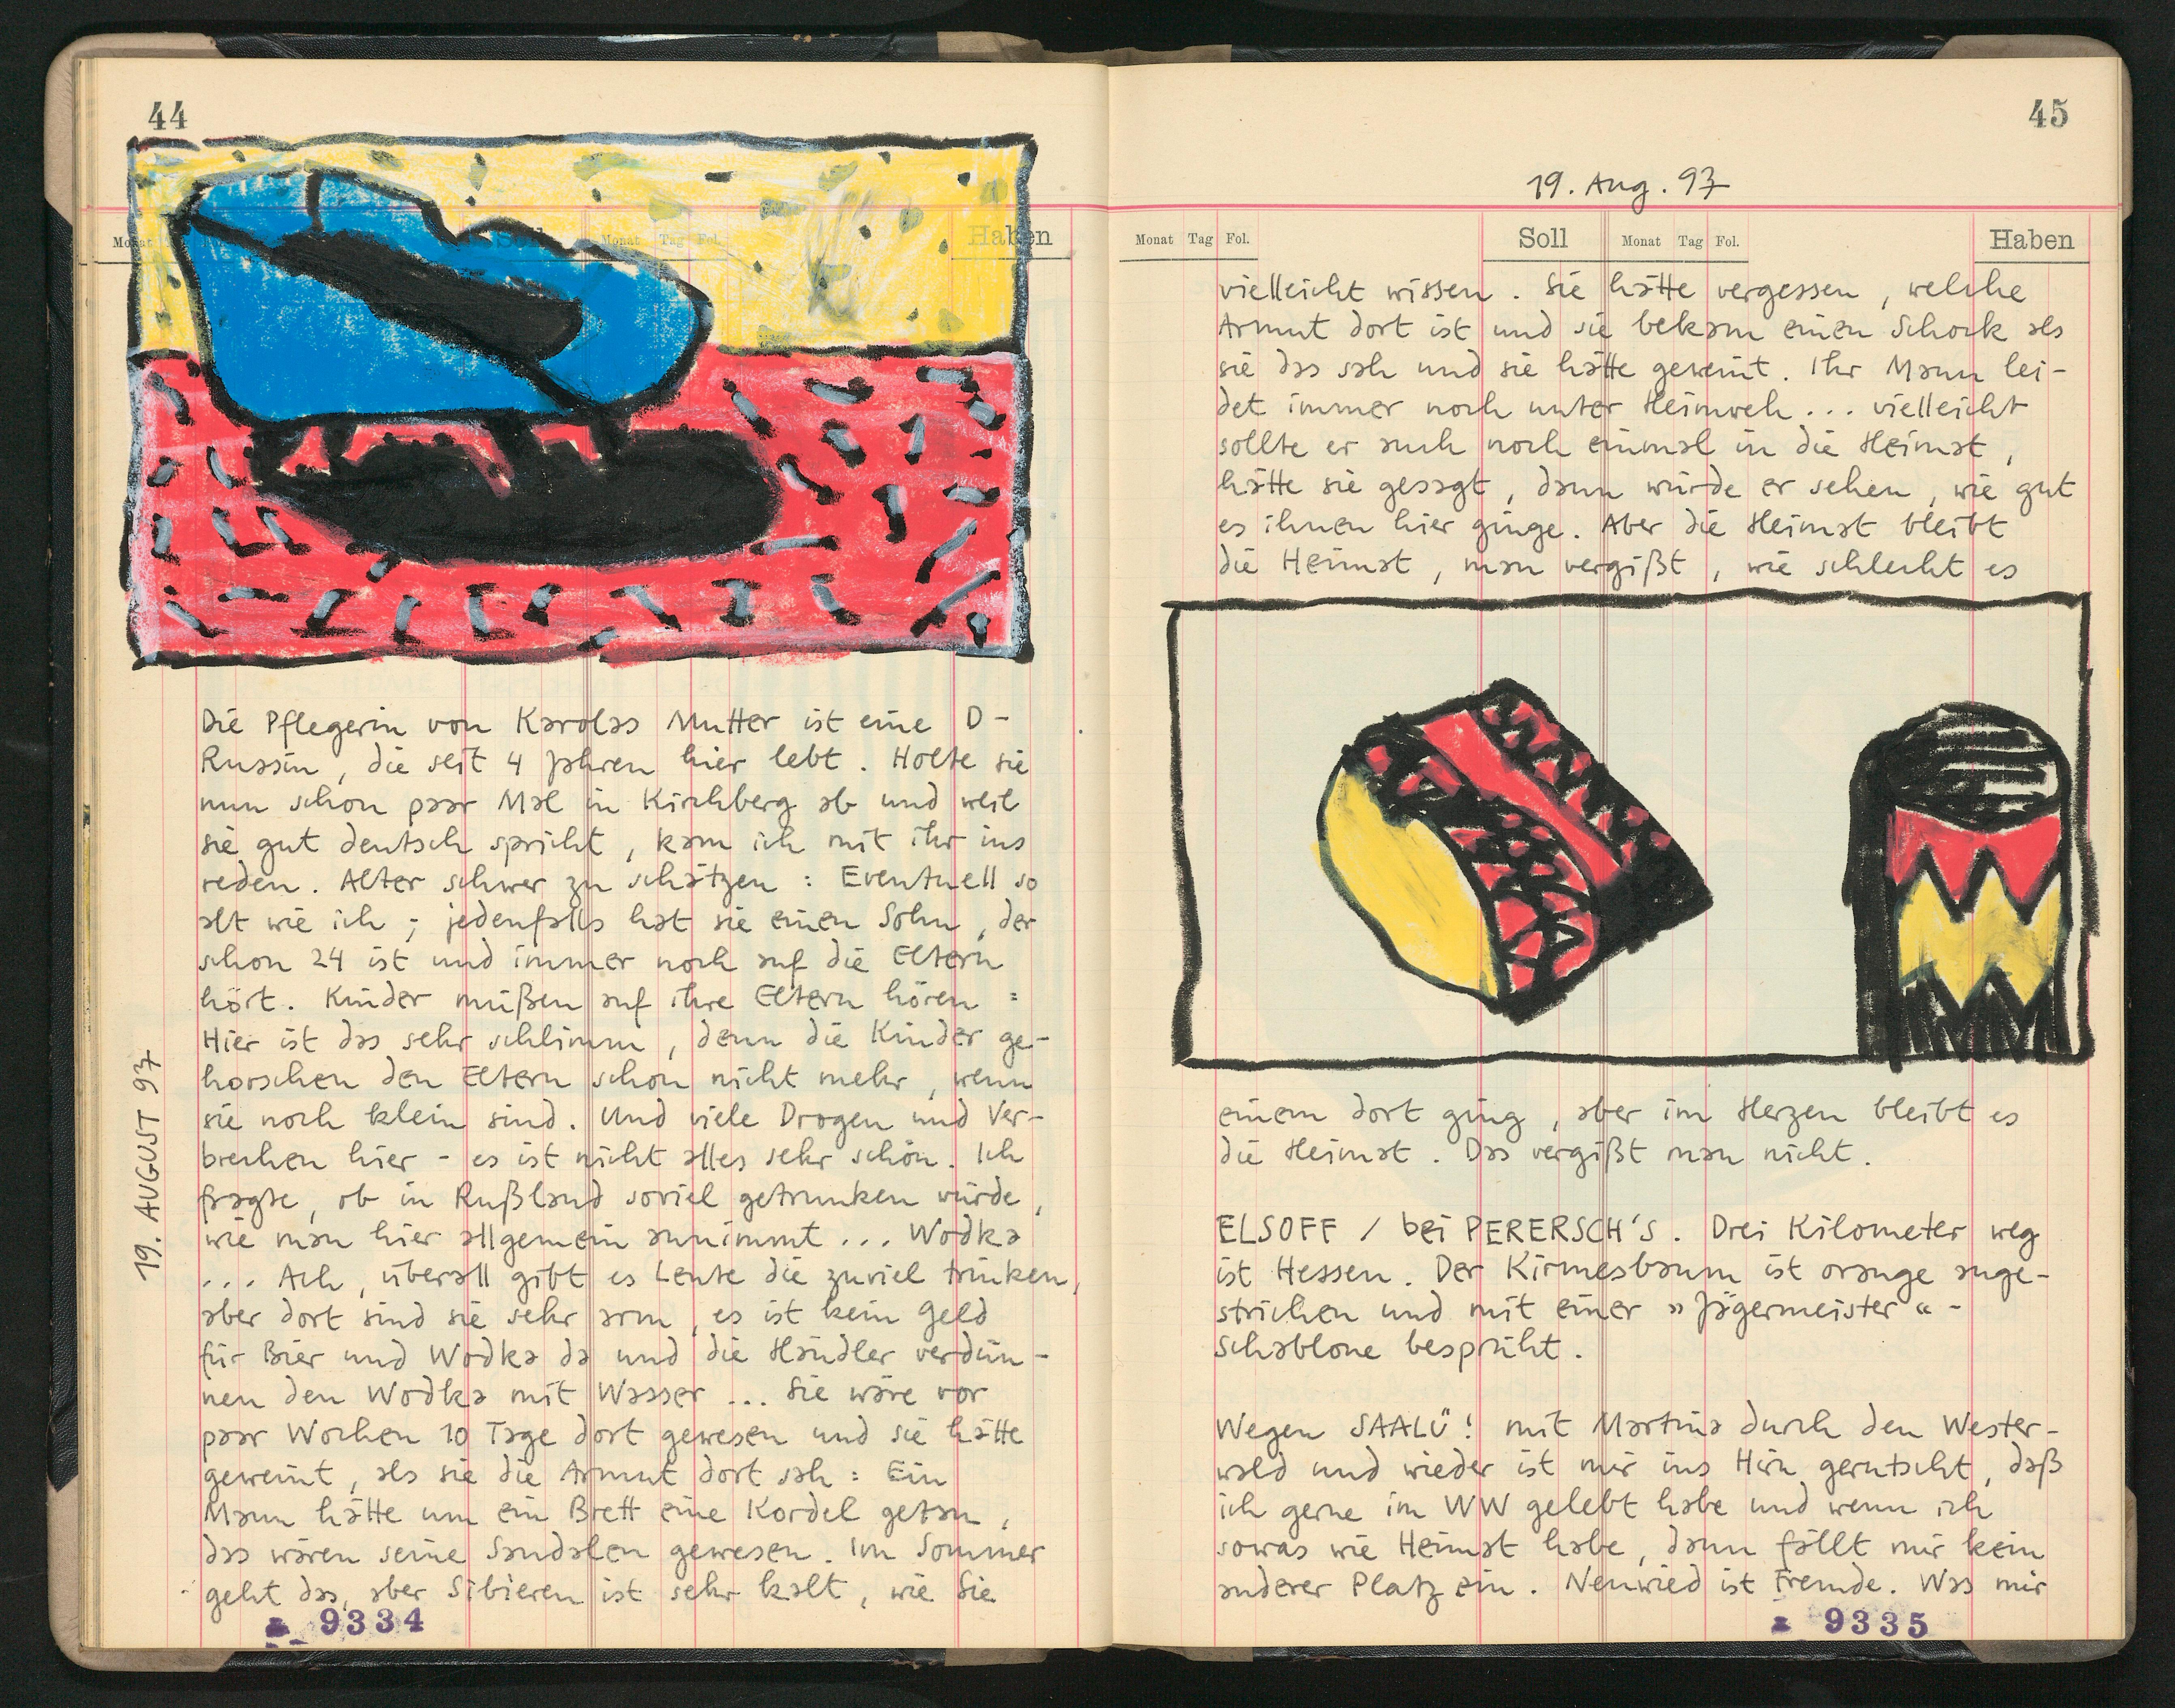 44
Monat Tag Fol. Soll Monat Tag Fol. Haben
Die Pflegerin von Karolas Mutter ist eine D-
Russin, die seit 4 Jahren hier lebt. Holte sie
nun schon paar Mal in Kirchberg ab und weil
sie gut deutsch spricht, kam ich mit ihr ins
reden. Alter schwer zu schätzen: Eventuell so
alt wie ich; jedenfalls hat sie einen Sohn, der
schon 24 ist und immer noch auf die Eltern
hört. Kinder müßen auf ihre Eltern hören:
Hier ist das sehr schlimm, denn die Kinder ge-
horschen den Eltern schon nicht mehr, wenn
sie noch klein sind. Und viele Drogen und Ver-
brechen hier - es ist nicht alles sehr schön. Ich
fragte, ob in Rußland soviel getrunken würde,
wie man hier allgemein annimmt... Wodka
... Ach, überall gibt es Leute die zuviel trinken,
aber dort sind sie sehr arm, es ist kein Geld
für Bier und Wodka da und die Händler verdün-
nen den Wodka mit Wasser... Sie wäre vor
paar Wochen 10 Tage dort gewesen und sie hätte
geweint, als sie die Armut dort sah: Ein
Mann hätte um ein Brett eine Kordel getan,
das wären seine Sandalen gewesen. Im Sommer
geht das, aber Sibieren ist sehr kalt, wie Sie
19. AUGUST 97
9334
45
19. Aug. 97
Monat Tag Fol. Soll Monat Tag Fol. Haben
vielleicht wissen. Sie hätte vergessen, welche
Armut dort ist und sie bekam einen Schock als
sie das sah und sie hätte geweint. Ihr Mann lei-
det immer noch unter Heimweh... vielleicht
sollte er auch noch einmal in die Heimat,
hätte sie gesagt, dann würde er sehen, wie gut
es ihnen hier ginge. Aber die Heimat bleibt
die Heimat, man vergißt, wie schlecht es
einem dort ging, aber im Herzen bleibt es
die Heimat. Das vergißt man nicht.
ELSOFF / bei PERERSCH'S. Drei Kilometer weg
ist Hessen. Der Kirmesbaum ist orange ange-
strichen und mit einer »Jägermeister«-
schablone besprüht.
Wegen SAALÜ! mit Martina durch den Wester-
wald und wieder ist mir ins Hirn gerutscht, daß
ich gerne im WW gelebt habe und wenn ich
sowas wie Heimat habe, dann fällt mir kein
anderer Platz ein. Neuwied ist Fremde. Was mir
9335